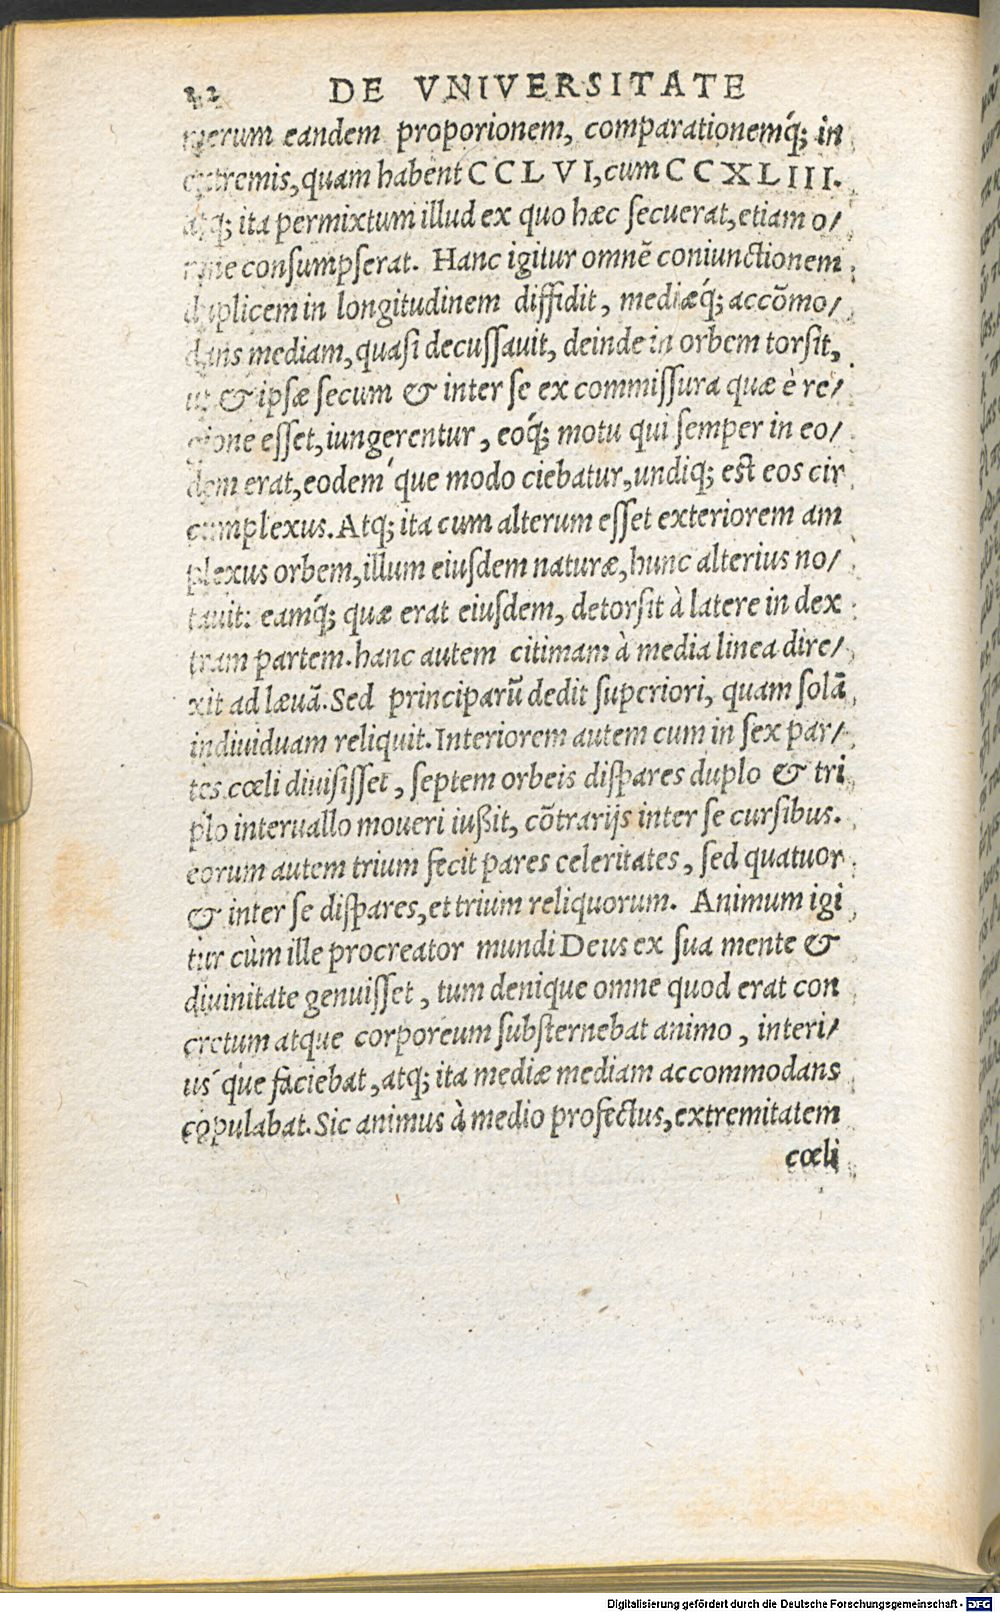 22 DE VNIVERSITATE
merum eandem proporionem, comparationemq́; in
extremis, quam habent CCLVI, cum CCXLIII.
atq; ita permixtum illud ex quo hæc secuerat, etiam o/
mne consumpserat. Hanc igitur omnē coniunctionem
duplicem in longitudinem diffidit, mediæq́; accōmo/
dans mediam, quasi decussauit, deinde in orbem torsit,
ut & ipsæ secum & inter se ex commissura quæ è re/
gione esset, iungerentur, eoq́; motu qui semper in eo/
dem erat, eodem´que modo ciebatur, undiq; est eos cir
cumplexus. Atq; ita cum alterum esset exteriorem am
plexus orbem, illum eiusdem naturæ, hunc alterius no/
tauit: eamq́; quæ erat eiusdem, detorsit à latere in dex
tram partem. hanc autem citimam à media linea dire/
xit ad læuā. Sed principarū dedit superiori, quam solā
indiuiduam reliquit. Interiorem autem cum in sex par/
tes cœli diuisisset, septem orbeis dispares duplo & tri
plo interuallo moueri iußit, cōtrarijs inter se cursibus.
eorum autem trium fecit pares celeritates, sed quatuor
& inter se dispares, et trium reliquorum. Animum igi
tur cùm ille procreator mundi Deus ex sua mente &
diuinitate genuisset, tum denique omne quod erat con
cretum atque corporeum substernebat animo, interi/
us´que faciebat, atq; ita mediæ mediam accommodans
copulabat. Sic animus à medio profectus, extremitatem
cœli
Digitalisierung gefördert durch die Deutsche Forschungsgemeinschaft - DFG